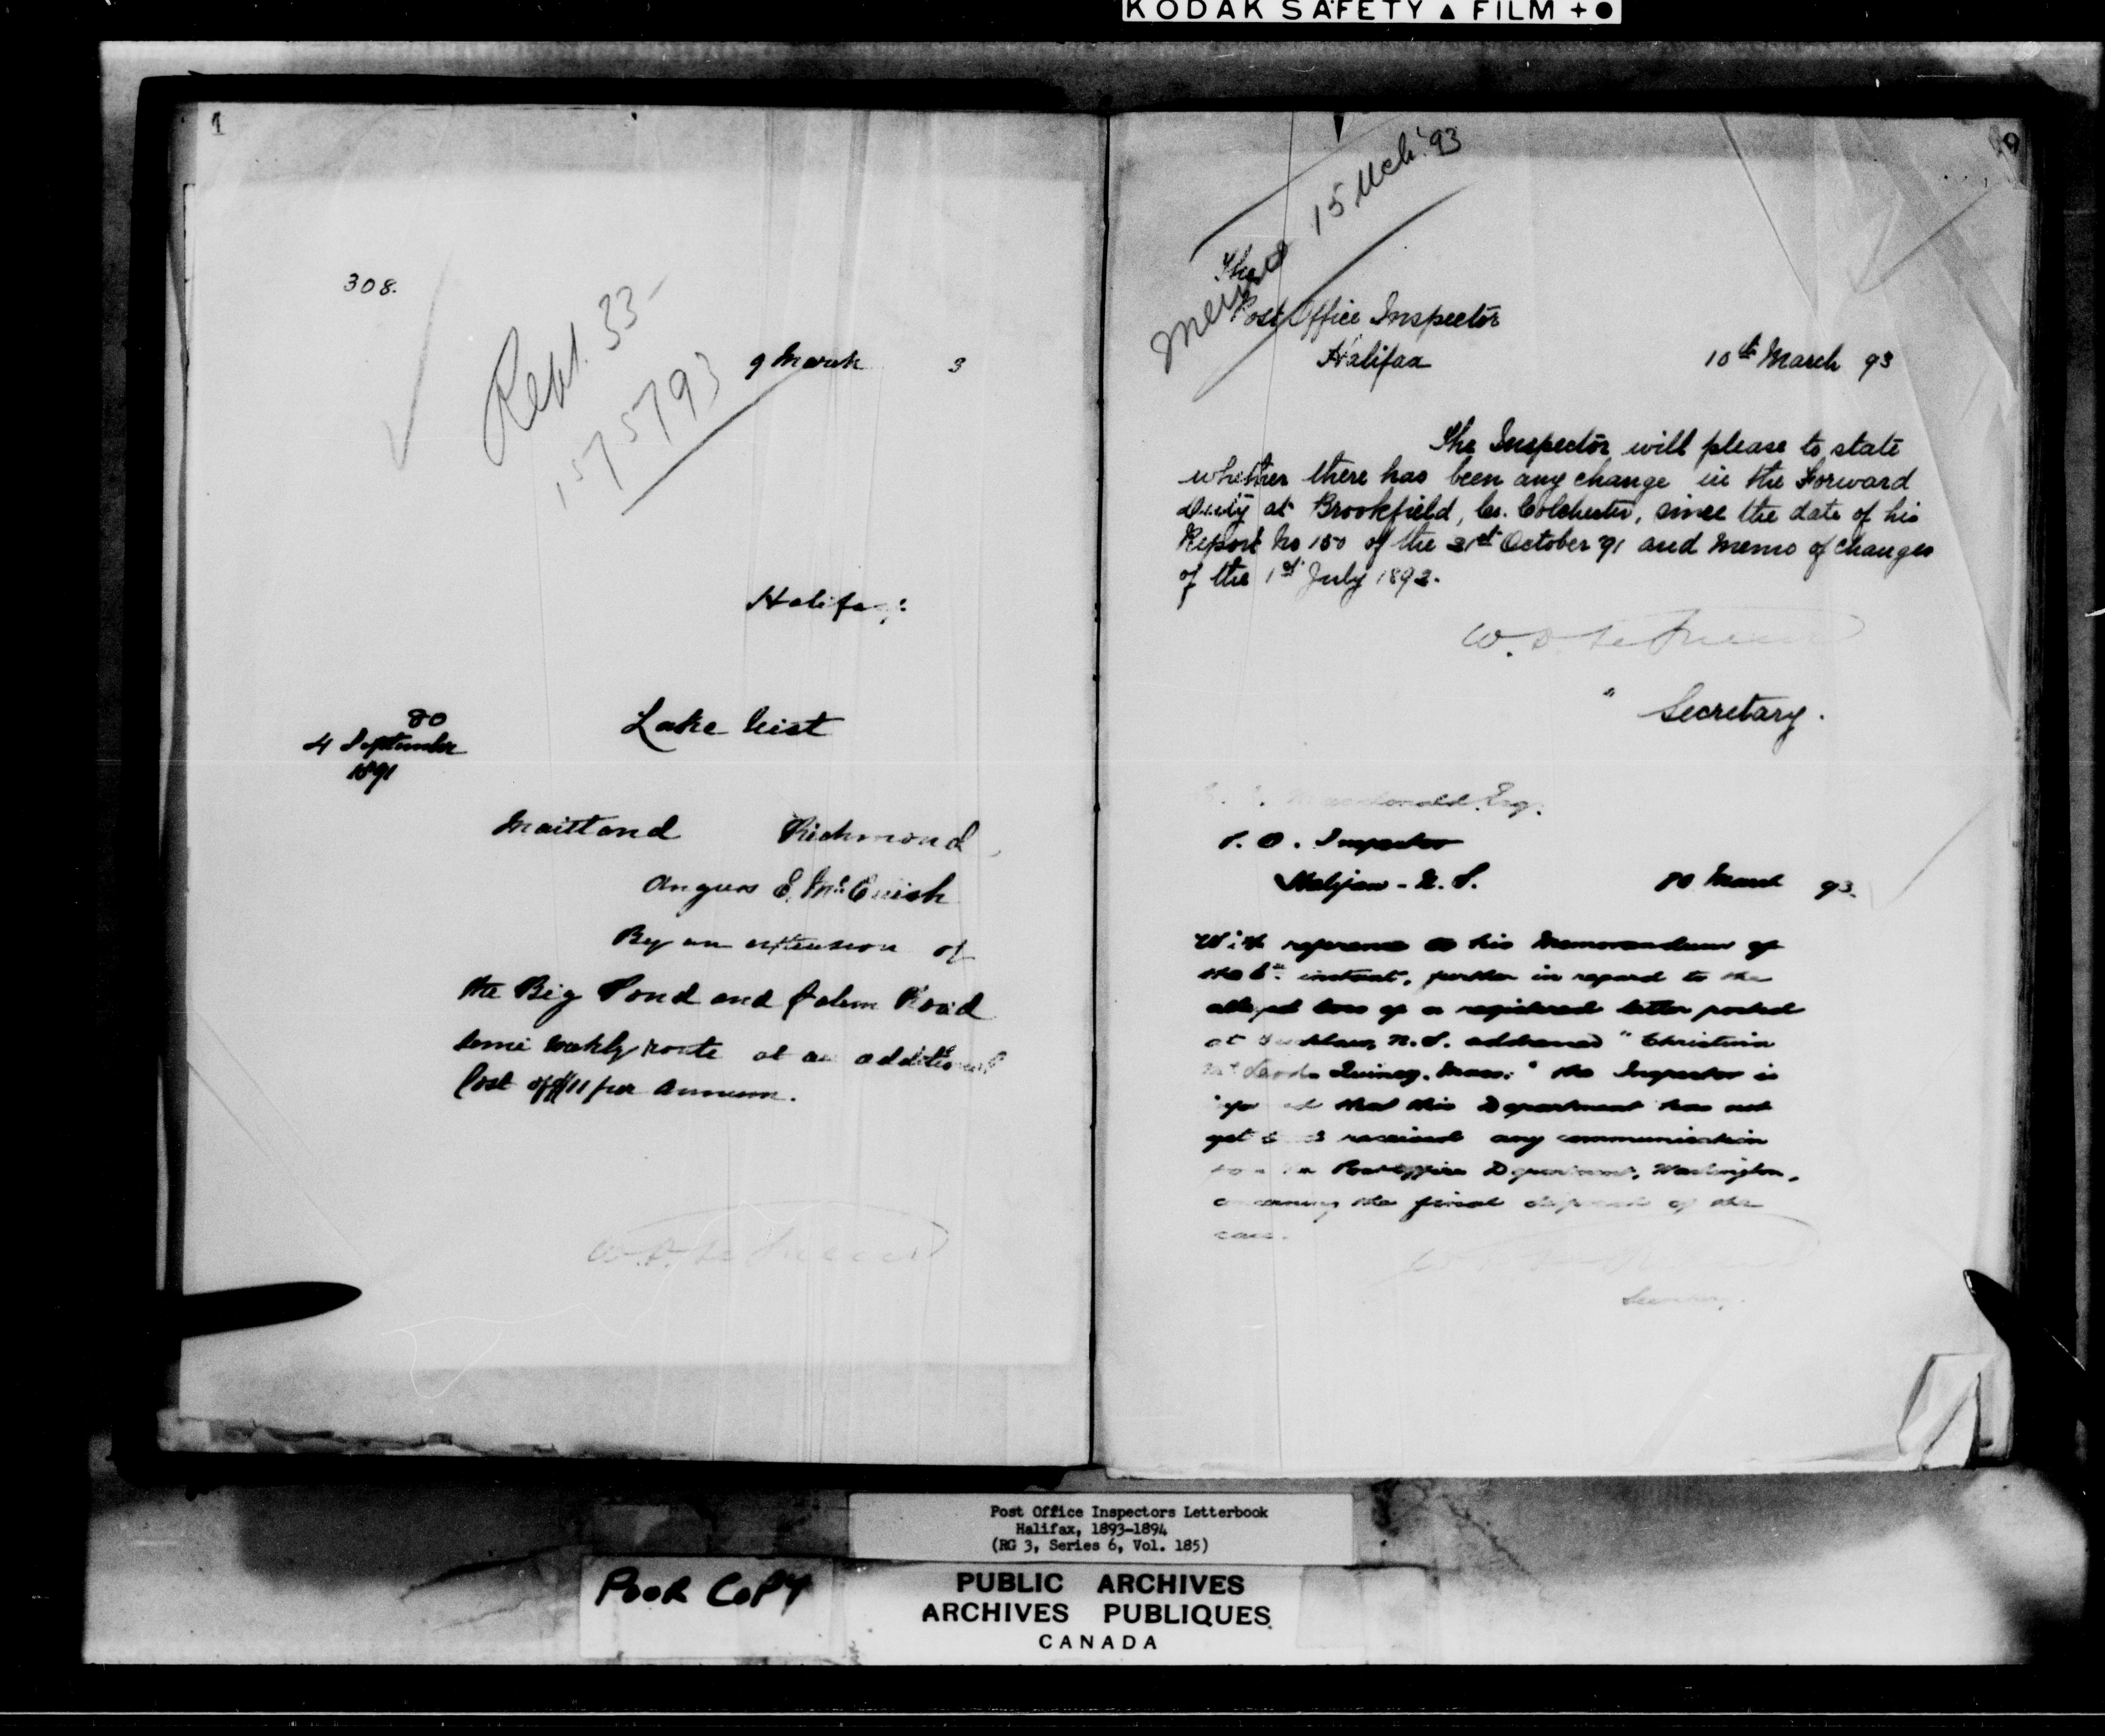 KODAK SAFETY ▲ FILM + ●
1
308.
Rept. 33-
157793
9 March 3
Halifax
80
4 September
1891
Lake Uist
Maitland Richmond
Angus E. McCuish
By an extension of
the Big Pond and Salem Road
semi weekly route at an additional
Cost of $11 per annum.
Memo 15 Mch. '93
The
Post Office Inspector
Halifax 10th March 93
The Inspector will please to state
whether there has been any change in the Forward
Duty at Brookfield, Co. Colchester, since the date of his
Report No 150 of the 21st October '91 and Memo of changes
of the 1st July 1892.
W. D. LeSueur
" Secretary.
Macdonald Esq.
P. O. Inspector
Halifax - N. S. March 93.
With reference to his Memorandum of
the 6th instant, further in regard to the
alleged loss of a registered letter posted
at N. S. addressed "Christina
Quincy, Mass." the Inspector is
that this Department has not
yet received any communication
Post Office Department, Washington,
concerning the final disposal of the
case.
Secretary.
Post Office Inspectors Letterbook
Halifax, 1893-1894
(RG 3, Series 6, Vol. 185)
POOR COPY
PUBLIC ARCHIVES
ARCHIVES PUBLIQUES
CANADA